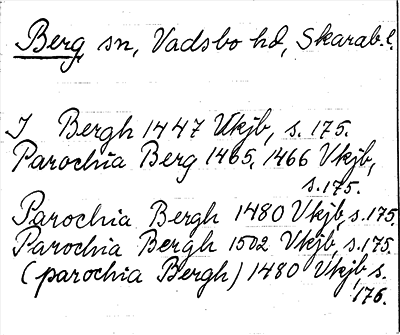 Berg, sn, Vadsbo hd, Skarab.l.
I Bergh 1447 Vkjb, s. 175.
Parochia Berg 1465, 1466 Vkjb,
s. 175.
Parochia Bergh 1480 Vkjb, s. 175.
Parochia Bergh 1502 Vkjb, s. 175.
(parochia Bergh) 1480 Vkjb s.
176.